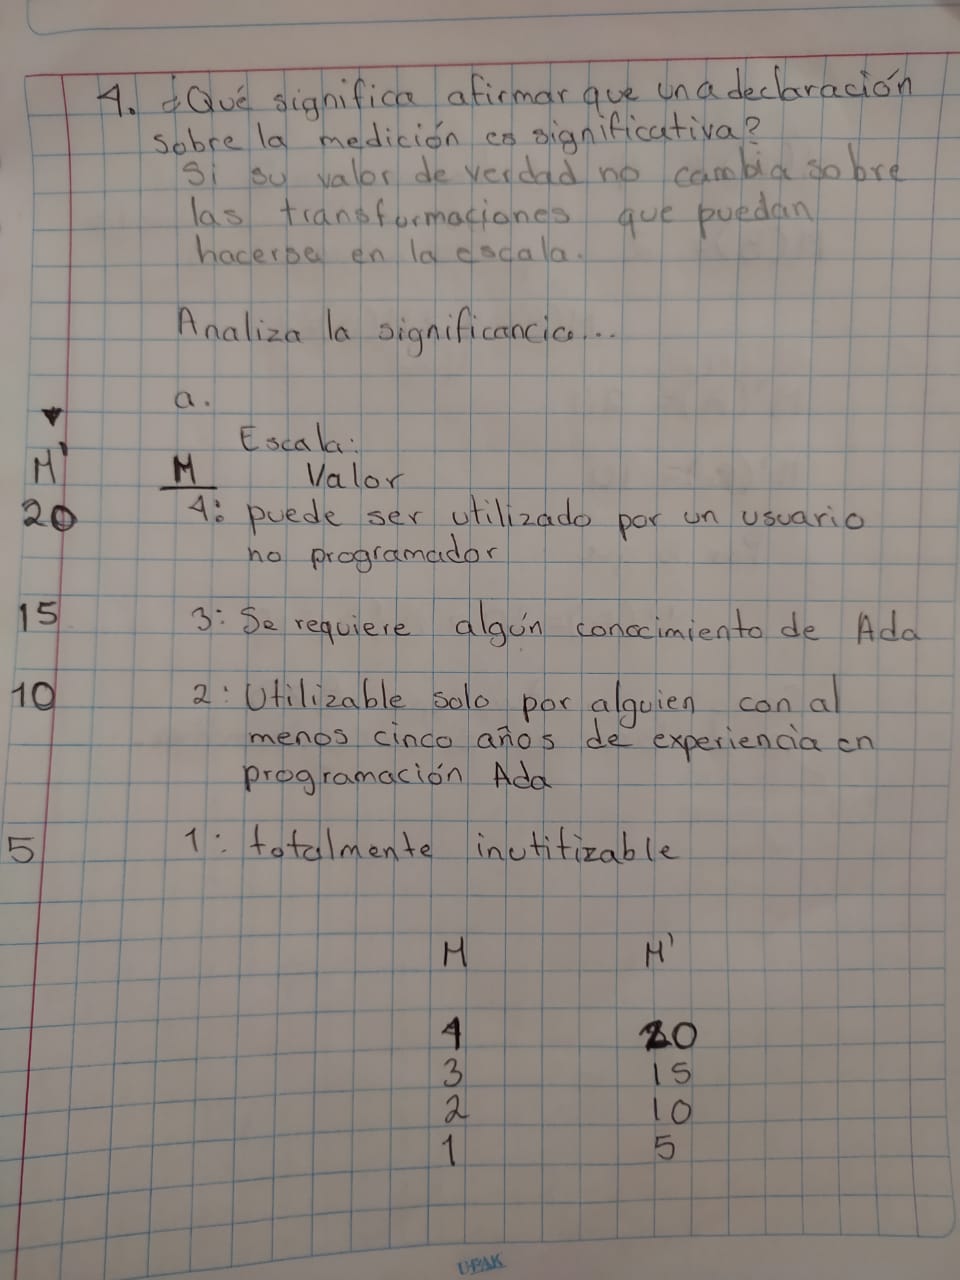 4. ¿Qué significa afirmar que una declaración
sobre la medición es significativa?
Si su valor de verdad no cambia sobre
las transformaciones que puedan
hacerse en la escala.
Analiza la significancia...
a.
Escala:
M' M Valor
20 4: puede ser utilizado por un usuario
no programador
15 3: Se requiere algún conocimiento de Ada
10 2: Utilizable solo por alguien con al
menos cinco años de experiencia en
programación Ada
5 1: totalmente inutitizable
M M'
4 20
3 15
2 10
1 5
UPAK